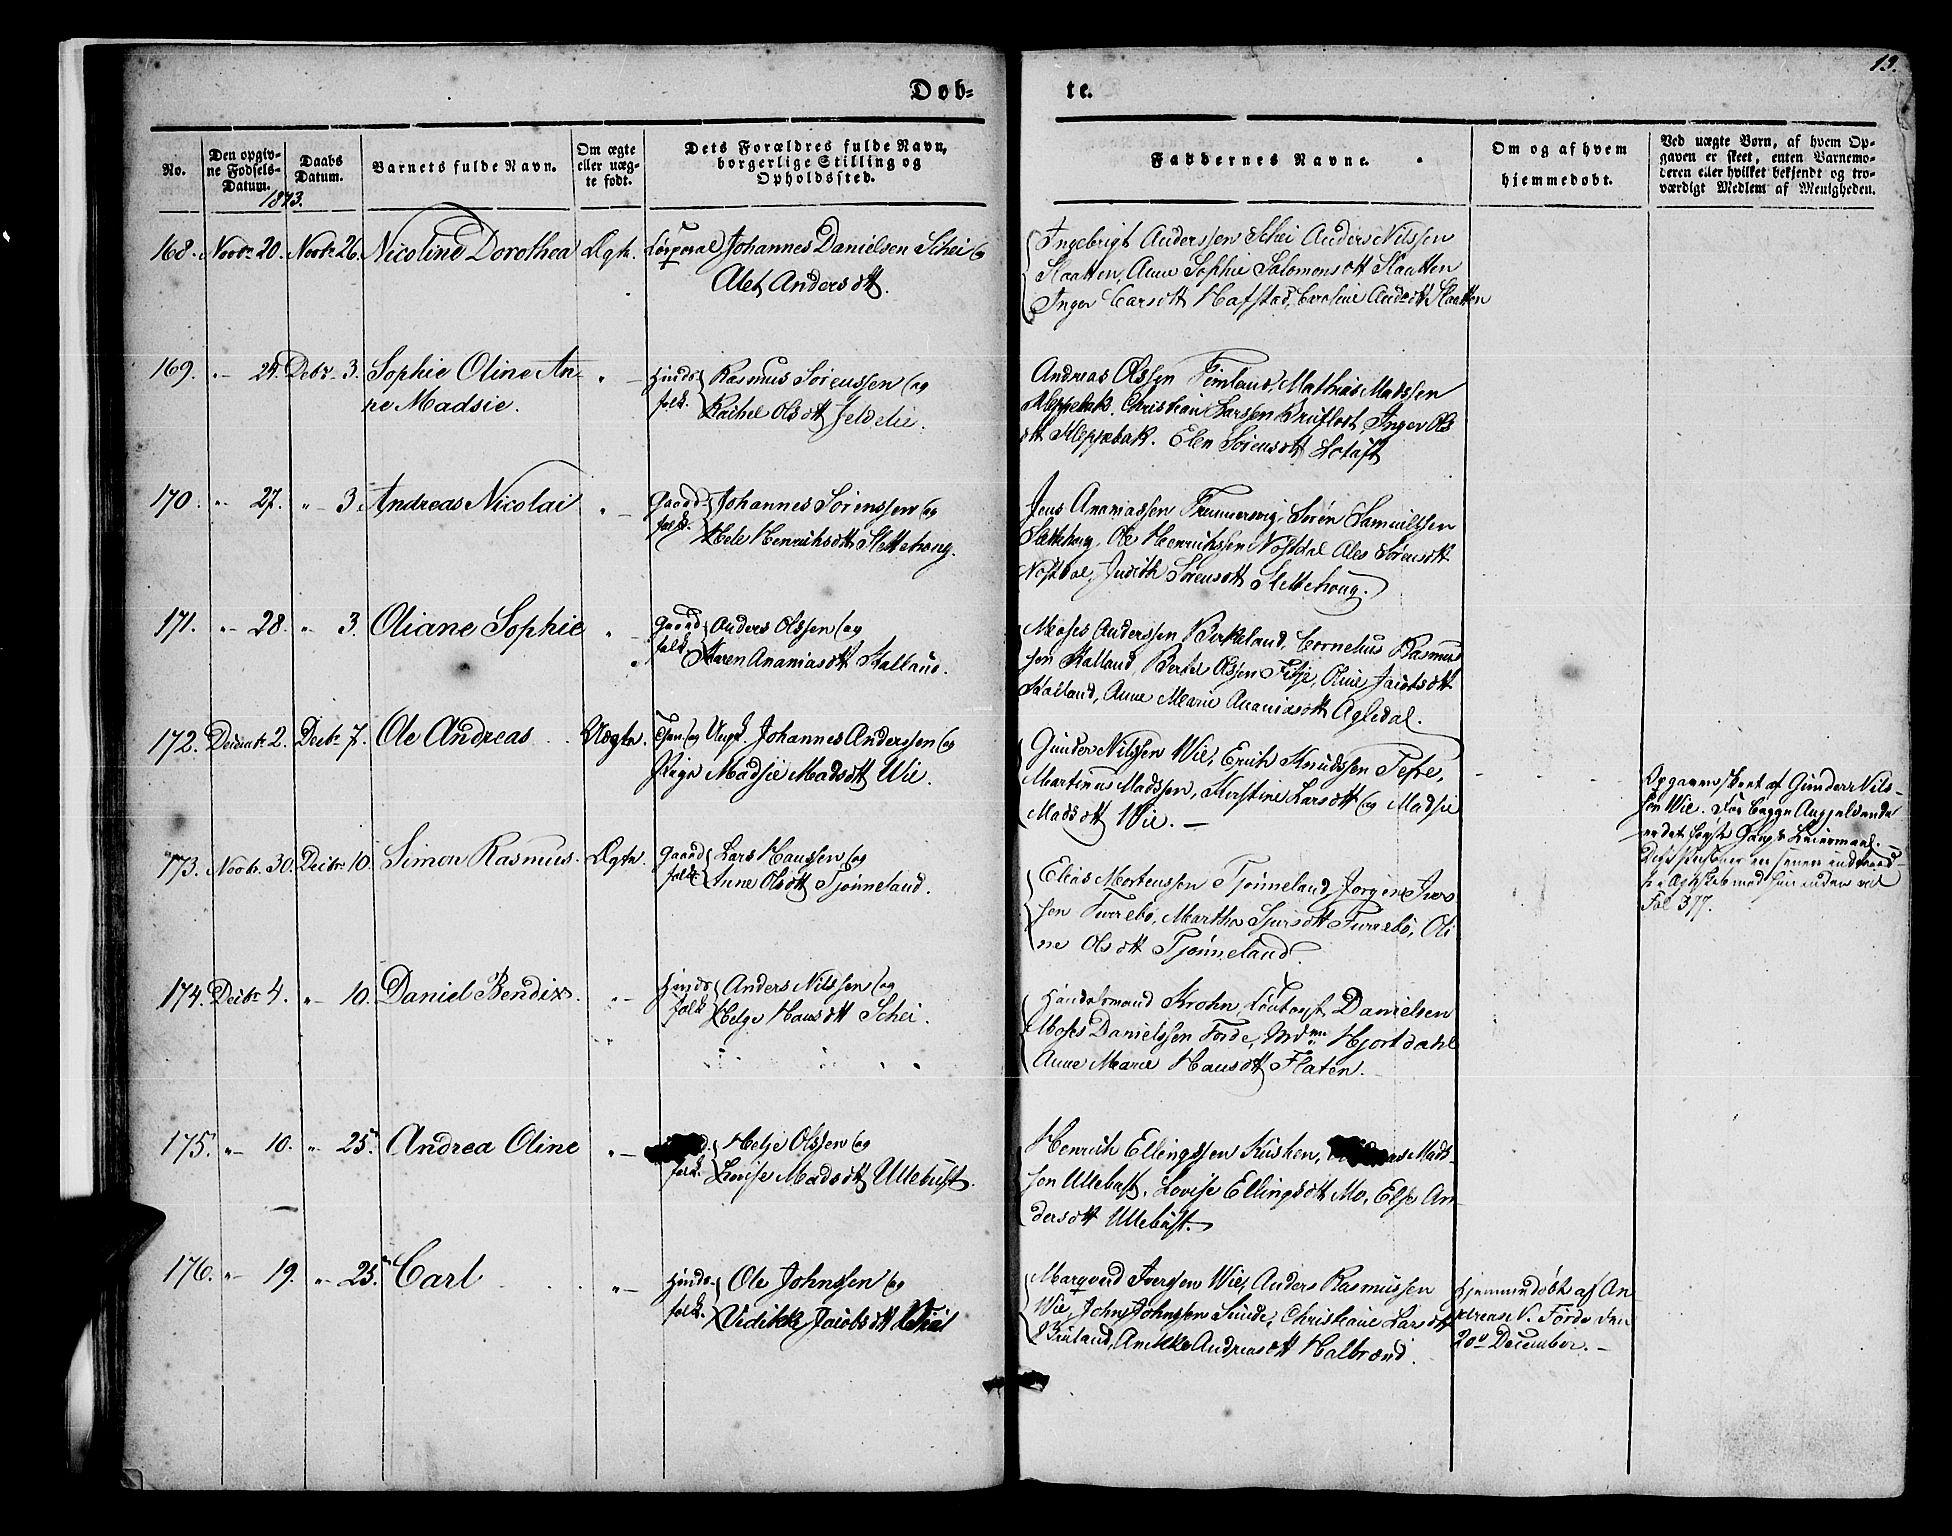 13.
Døb- te.
No.
Den opgiv-
ne Fødsels-
Datum.
Daabs
Datum.
Varnets fulde Navn.
Om ægte
eller uæg-
te født.
Dets Forældres fulde Navn,
borgerlige Stilling og
Opholdssted.
Faddernes Navne.
Om og af hvem
hjemmedøbt.
Ved uægte Børn, af hvem Op-
gaven er skeet, enten Barnemo-
deren eller hvilket bekjendt og tro-
værdigt Medlem af Menigheden.
168. Novbr 20. Novbr 26. Nicoline Dorothea Ægte. Johannes Danielsen Schei og
Alet Andersdtt.
Ingebrigt Anderssen Schei Anders Nilssen
Slaatten, Anne Sophie Salomonsdtt Slaatten
Inger Larsdtt Hafstad, Slaatten
169. " 24. Debr 3. Sophie Oline An-
ne Madsie.
" Hunds- Rasmus Sørenssen og
folk. Rachel Olsdtt
Andreas Olssen Mathias Madssen
Kleppebak. Christian Larssen Inger Ols
dtt Kleppebak. Elen Sørensdtt
170. " 27. " 3. Andreas Nicolai " Gaard- Johannes Sørenssen og
folk. Henrichsdtt Slettehoug.
Jens Ananiassen Søren Samuelssen
Slettehoug, Ole Henrichssen Sørensdtt
Judith Sørensdtt Slettehoug.
171. " 28. " 3. Oliane Sophie " Gaard- Anders Olssen og
folk. Karen Ananiasdtt Kalland.
Moses Anderssen Birkeland, Cornelius Rasmus
sen Kalland, Olssen Jacobsdtt
Kalland, Anne Marie Ananiasdtt Agledal.
172. Decbr 2. Decbr 7. Ole Andreas Uægte. Ungk. Johannes Anderssen og
Pige Madsie Madsdtt Wie.
Gunder Nilssen Wie, Erich Knudssen Tefre,
Martinus Madssen, Kirstine Larsdtt og Madsie
Madsdtt Wie.
Opgaven skeet af Gunder Nils-
sen Wie. For begge Angjeldende
er det første Gangs Leiermaal.
Fol 377.
173. Novbr. 30. Decbr. 10. Simon Rasmus. Ægte. Gaard- Lars Hanssen og
folk Anne Olsdtt Tjønneland.
Elias Mortenssen Tjønneland, Jørgen Iver
sen Furrebø, Martha Furrebø, Oli
ne Olsdtt Tjønneland.
174. Decbr 4. " 10. Daniel Bendix. " Hunds- Anders Nilssen og
folk Helge Hansdtt Schei.
Handelsmand Krohn, Danielsen
Moses Danielssen Førde, Hjortdahl
Anne Marie Hansdtt Flaten.
175. " 10. " 25. Andrea Oline " Helje Olssen og
folk. Lovise Madsdtt Ullebust.
Henrich Ellingssen Mads-
sen Ullebust, Lovise Ellingsdtt Mo, Else An
dersdtt Ullebust.
176. " 19. " 25. Carl " Hunds- Ole Johnssen og
folk. Vedikke Jacobsdtt Wie
Marqvard Iversen Wie, Anders Rasmussen
Wie, John Johnssen Sunde, Christiane Larsdtt
Bruland, Anikke Andreasdtt Halbrend.
Hjemmedøbt af An-
dreas N. Førde den
20de December.